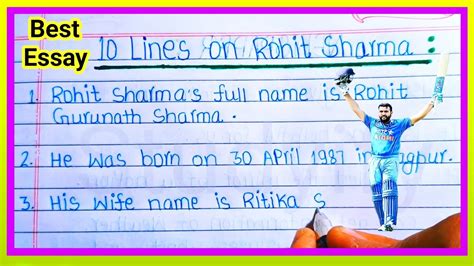 Best
Essay
10 Lines on Rohit Sharma :
1. Rohit Sharma's full name is Rohit
Gurunath Sharma.
2. He was born on 30 April 1987 in
3. His Wife name is Ritika S